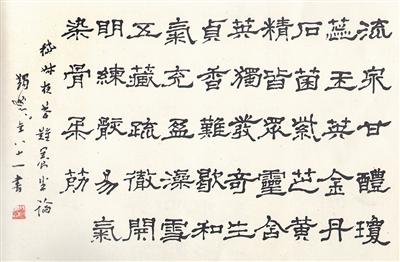 流泉甘醴瓊
蕊玉英金丹
石菌紫芝黃
精皆眾靈含
英獨發奇生
貞香難歇和
氣充盈澡雪
五藏疏徹開
明練骸易氣
染骨柔筋
嵇叔夜答難養生論
八十一書